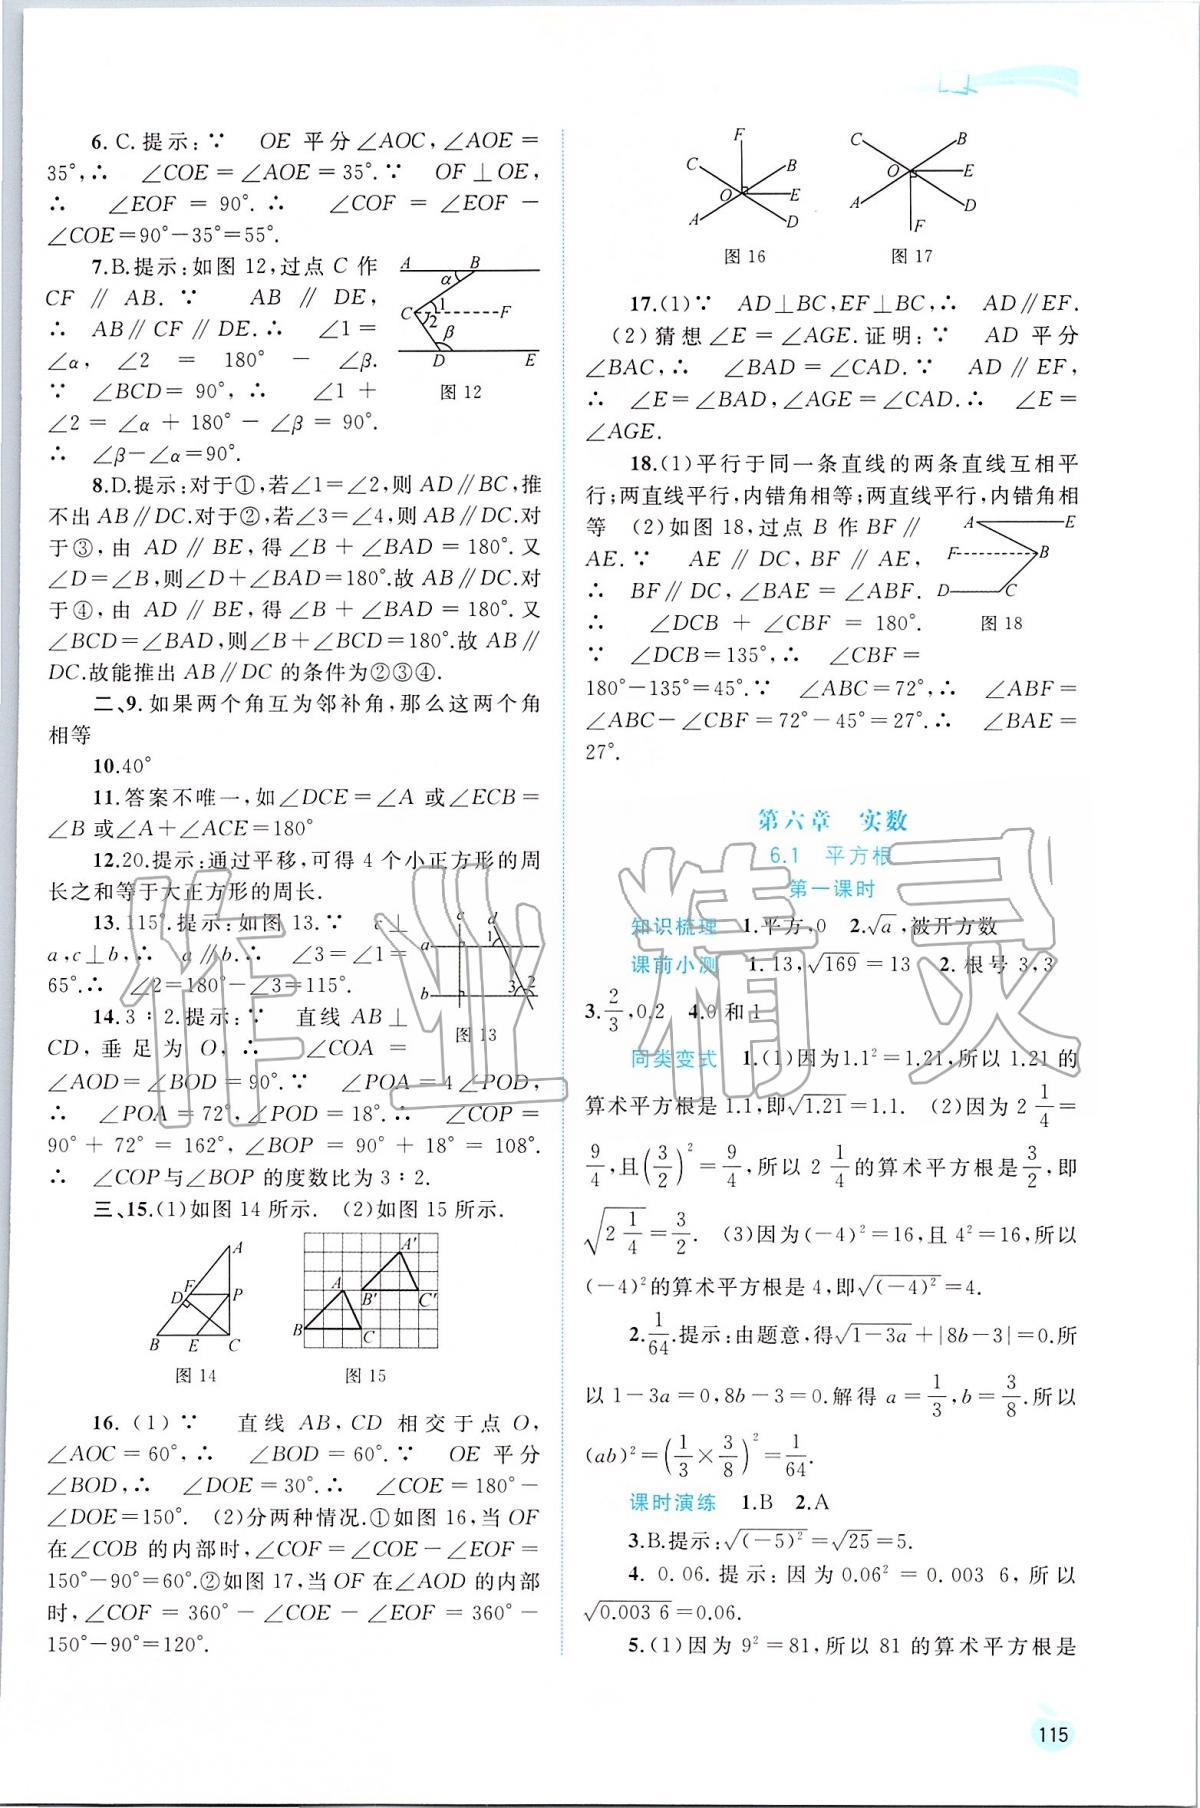 6. C.提示:∵ OE 平分∠AOC,∠AOE=
35°,∴ ∠COE=∠AOE=35°.∵ OF⊥OE,
∴ ∠EOF = 90°.∴ ∠COF = ∠EOF −
∠COE=90°−35°=55°.
7.B.提示:如图 12,过点 C 作
CF ∥ AB. ∵ AB ∥ DE,
∴ AB∥CF∥DE.∴ ∠1=
∠α, ∠2 = 180° − ∠β.
∵ ∠BCD=90°, ∴ ∠1+
∠2=∠α+180°−∠β=90°.
∴ ∠β−∠α=90°.
A B α C 1 2 F β D E
图 12
8.D.提示:对于①,若∠1=∠2,则 AD∥BC,推
不出 AB∥DC.对于②,若∠3=∠4,则 AB∥DC.对
于③,由 AD∥BE,得∠B+∠BAD=180°.又
∠D=∠B,则∠D+∠BAD=180°.故 AB∥DC.对
于④,由 AD∥BE,得∠B+∠BAD=180°.又
∠BCD=∠BAD,则∠B+∠BCD=180°.故 AB∥
DC.故能推出 AB∥DC 的条件为②③④.
二、9.如果两个角互为邻补角,那么这两个角
相等
10.40°
11.答案不唯一,如∠DCE=∠A 或∠ECB=
∠B 或∠A+∠ACE=180°
12.20.提示:通过平移,可得 4 个小正方形的周
长之和等于大正方形的周长.
13.115°.提示:如图 13.∵ c⊥
a,c⊥b,∴ a∥b.∴ ∠3=∠1=
65°.∴ ∠2=180°−∠3=115°.
c d a 1 b 3 2
图 13
14.3∶2.提示:∵ 直线 AB⊥
CD,垂足为 O,∴ ∠COA=
∠AOD=∠BOD=90°.∵ ∠POA=4∠POD,
∴ ∠POA=72°,∠POD=18°.∴ ∠COP=
90°+72°=162°,∠BOP=90°+18°=108°.
∴ ∠COP与∠BOP 的度数比为 3∶2.
三、15.(1)如图 14 所示. (2)如图 15 所示.
A F D P B E C
图 14
A′ A B′ C′ B C
图 15
16.(1)∵ 直线 AB,CD 相交于点 O,
∠AOC=60°,∴ ∠BOD=60°.∵ OE 平分
∠BOD,∴ ∠DOE=30°.∴ ∠COE=180°−
∠DOE=150°. (2)分两种情况.①如图 16,当 OF
在∠COB 的内部时,∠COF=∠COE−∠EOF=
150°−90°=60°.②如图 17,当 OF 在∠AOD 的内部
时,∠COF=360°−∠COE−∠EOF=360°−
150°−90°=120°.
F C B O E A D
图 16
C B O E A D F
图 17
17.(1)∵ AD⊥BC,EF⊥BC,∴ AD∥EF.
(2)猜想∠E=∠AGE.证明:∵ AD 平分
∠BAC,∴ ∠BAD=∠CAD.∵ AD∥EF,
∴ ∠E=∠BAD,∠AGE=∠CAD.∴ ∠E=
∠AGE.
18.(1)平行于同一条直线的两条直线互相平
行;两直线平行,内错角相等;两直线平行,内错角相
等 (2)如图 18,过点 B 作 BF∥
AE.∵ AE∥DC,BF∥AE,
∴ BF∥DC,∠BAE=∠ABF.
∴ ∠DCB+∠CBF=180°.
∵ ∠DCB=135°,∴ ∠CBF=
180°−135°=45°.∵ ∠ABC=72°,∴ ∠ABF=
∠ABC−∠CBF=72°−45°=27°.∴ ∠BAE=
27°.
A E F B D C
图 18
第六章 实数
6.1 平方根
第一课时
知识梳理 1.平方,0 2.√a,被开方数
课前小测 1.13,√169=13 2.根号 3,3
3.2/3,0.2 4.0 和 1
同类变式 1.(1)因为1.1²=1.21,所以 1.21 的
算术平方根是 1.1,即√1.21=1.1. (2)因为 2 1/4=
9/4,且(3/2)²=9/4,所以 2 1/4 的算术平方根是 3/2,即
√(2 1/4)=3/2. (3)因为(−4)²=16,且 4²=16,所以
(−4)²的算术平方根是 4,即√(−4)²=4.
2.1/64.提示:由题意,得√(1−3a)+|8b−3|=0.所
以 1−3a=0,8b−3=0.解得 a=1/3,b=3/8.所以
(ab)²=(1/3×3/8)²=1/64.
课时演练 1.B 2.A
3.B.提示:√(−5)²=√25=5.
4. 0.06.提示:因为 0.06²=0.003 6,所以
√0.003 6=0.06.
5.(1)因为 9²=81,所以 81 的算术平方根是
115
作业精灵